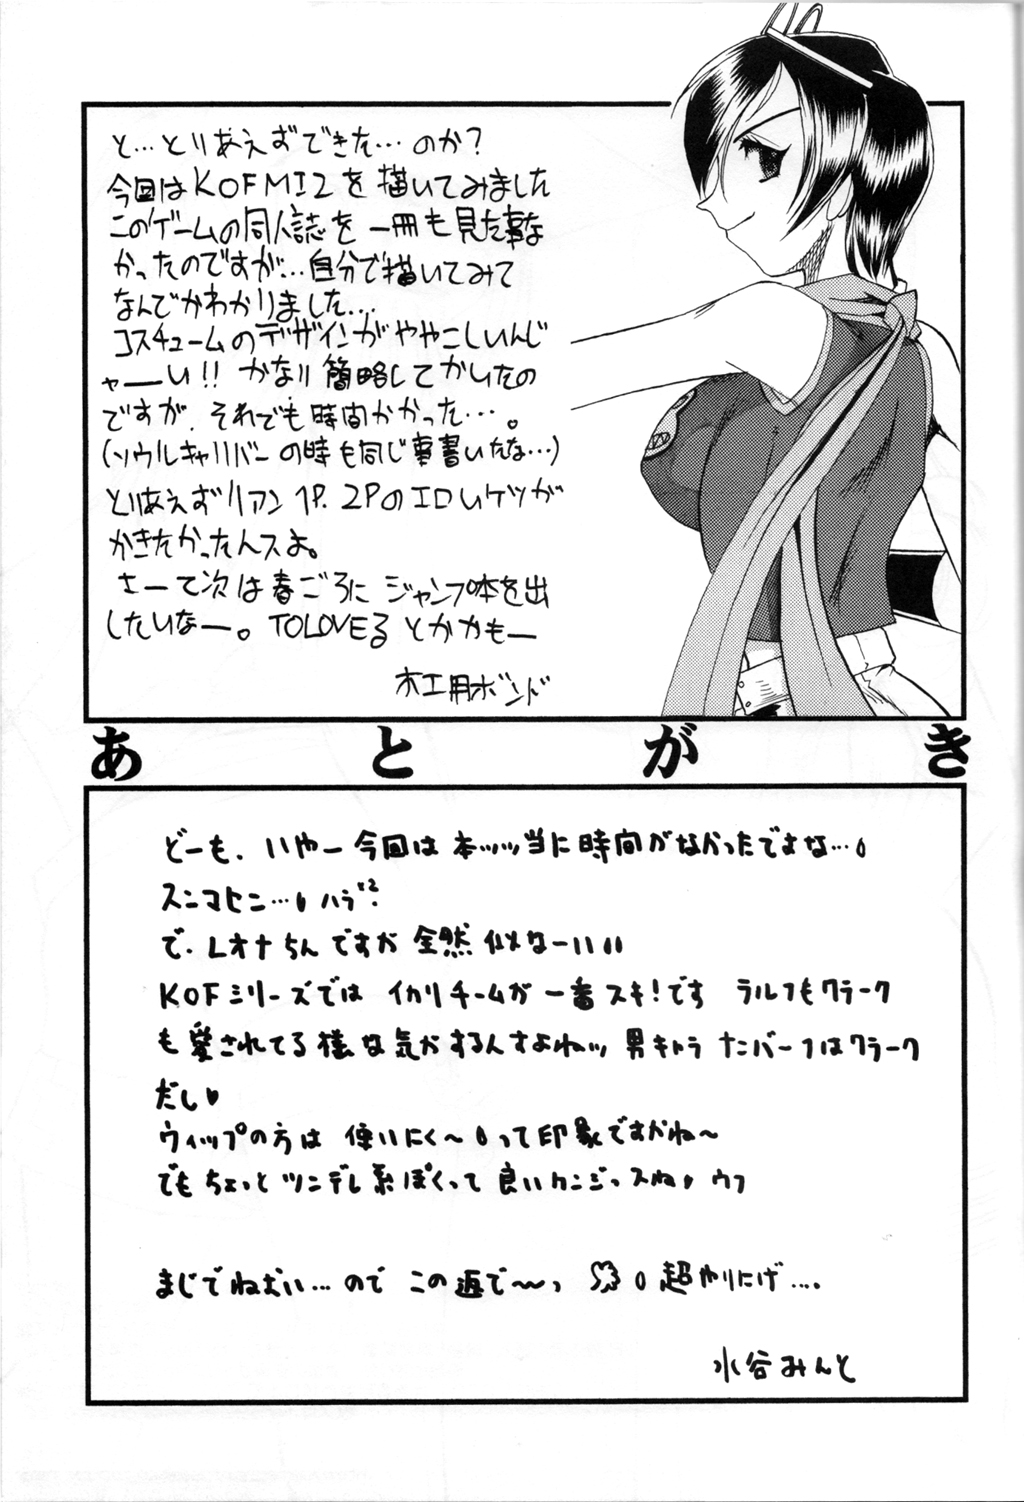 と…とりあえずできた…のか?
今回はKOFMI2を描いてみました
このゲームの同人誌を一冊も見た事な
かったのですが…自分で描いてみて
なんでかわかりました…
コスチュームのデザインがややこしいんじ
ャーい!!かなり簡略してかいたの
ですが、それでも時間かかった…。
(ソウルキャリバーの時も同じ事書いたな…)
とりあえずリアン1P.2Pのエロいケツが
かきたかったんスよ。
さーて次は春ごろにジャンプ本を出
したいなー。TOLOVEるとかかもー
木工用ボンド
あとがき
どーも、いやー今回は本ッッ当に時間がなかったですよな…
スンマヒン…
で、レオナちんですが全然似なーい
KOFシリーズではイカリチームが一番スキ!です ラルフもクラーク
も愛されてる様な気がするんすよねッ男キャラナンバー1はクラーク
だし♥
ウィップの方は使いにく〜って印象ですかね〜
でもちょっとツンデレ系ぽくって良いカンジっスね♥ウフ
まじでねむい…のでこの辺で〜っ 超やりにげ….
水谷みんと